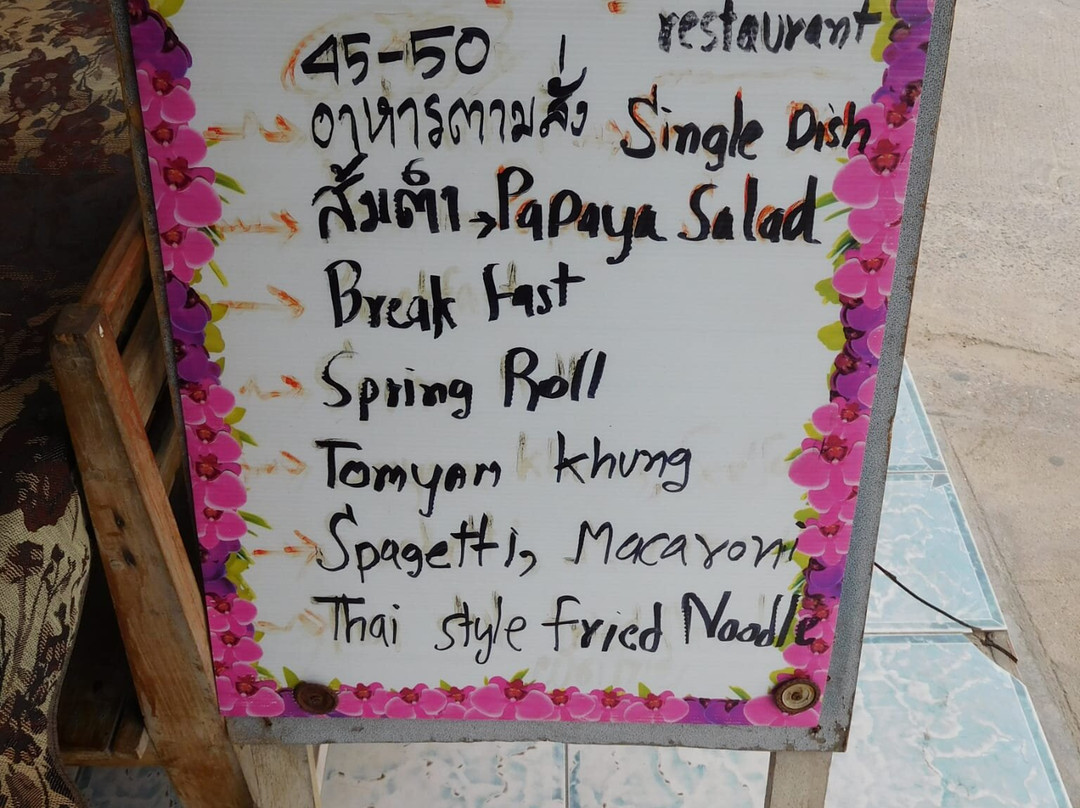 restaurant
45-50
อาหารตามสั่ง Single Dish
ส้มตำ, Papaya Salad
Break fast
Spring Roll
Tomyam khung
Spagetti, Macaroni
Thai style fried Noodle